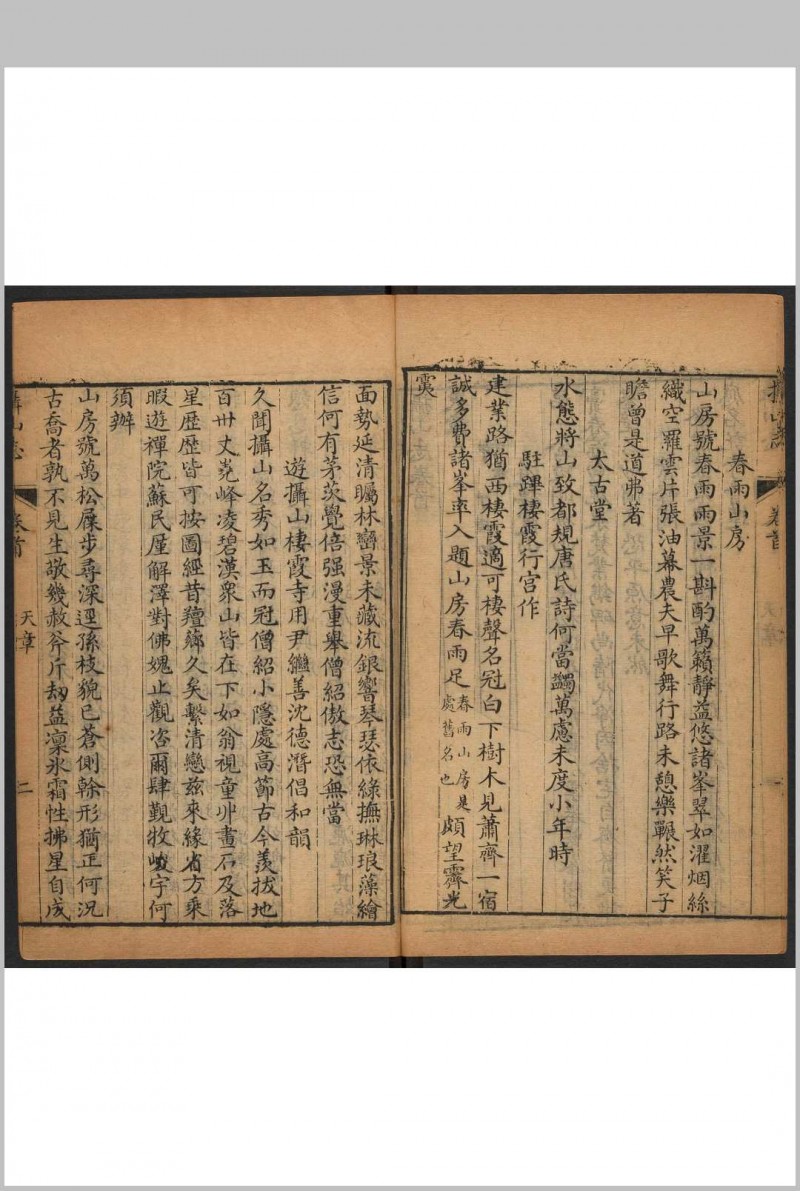 春雨山房
山房號春雨雨景一斟酌萬籟靜益悠諸峯翠如濯烟絲
織空羅雲片張油幕農夫早歌舞行路未憩樂囅然笑子
瞻曾是道弗著
太古堂
水態將山致都規唐氏詩何當蠲萬慮未度小年時
駐蹕棲霞行宮作
建業路猶西棲霞適可棲聲名冠白下樹木見蕭齊一宿
誠多費諸峯率入題山房春雨足春雨山房是處舊名也頗望霽光
霙
面勢延清矚林巒景未藏流銀響琴瑟依綠撫琳琅藻繪
信何有茅茨覺倍强漫重舉僧紹傲志恐無當
遊攝山棲霞寺用尹繼善沈德潛倡和韻
久聞攝山名秀如玉而冠僧紹小隱處高節古今羨拔地
百卅丈嶤峰凌碧漢衆山皆在下如翁視童丱畫石及落
星歷歷皆可按圖經昔羶薌久矣繫清戀兹來緣省方乘
暇遊禪院蘇民屋解澤對佛媿止觀咨爾肆覲牧峻宇何
須辦
山房號萬松屧步尋深逕孫枝貌已蒼側榦形猶正何況
古喬者孰不見生敬幾赦斧斤劫益凜氷霜性拂星自成
攝山志
卷首
天章
二
卷首